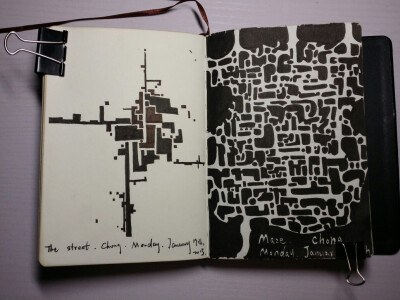 The street. Chong. Monday. January
Maze Chong
Monday January